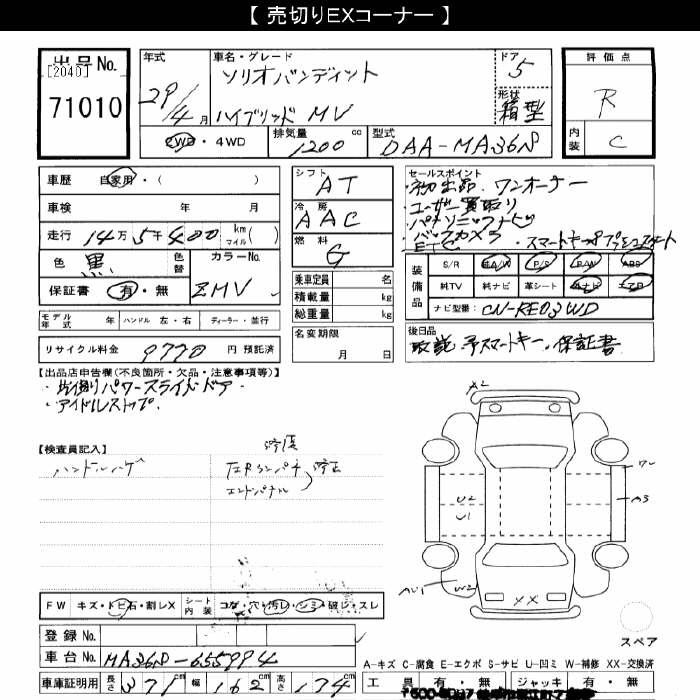 【 売切りEXコーナー 】
出品No.
[2040]
71010
年式
29/4月
車名・グレード
ソリオバンディット
ハイブリッド MV
ドア
5
形状
箱型
評価点
R
内装
C
2WD・4WD
排気量
1200 cc
型式
DAA-MA36S
車歴 自家用・( )
車検 年 月
走行 14万5千400 km マイル ( )
色 黒 色替
カラーNo.
ZMV
保証書 有・無
シフト
AT
冷房
AAC
燃料
G
乗車定員 名
積載量 kg
総重量 kg
セールスポイント
・初出品、ワンオーナー
・ユーザー買取り
・パナソニックナビ
・バックカメラ
・ETC ・スマートキー プッシュスタート
装備品
S/R A/W P/S P/W ABS
純TV 純ナビ 革シート ナビ エアB
ナビ型番 CN-RE03WD
モデル年式 年 ハンドル 左・右 ディーラー・並行
名変期限
月 日
後日品
取説、予スマートキー、保証書
リサイクル料金 9770 円 預託済
【出品店申告欄(不良箇所・欠品・注意事項等)】
・片側パワースライドドア
・アイドルストップ
【検査員記入】
ハンドルハゲ
修復
エンドパネル
修正
A2
U2
U1
A3
XX
FW キズ・トビ石・割レX
シート内装 コゲ・穴・汚レ・シミ・破レ・スレ
登録No.
車台No. MA36S-655994
車庫証明用 長さ 371 幅 162 高さ 174
スペア
A-キズ C-腐食 E-エクボ S-サビ U-凹ミ W-補修 XX-交換済
工具 有・無 ジャッキ 有・無